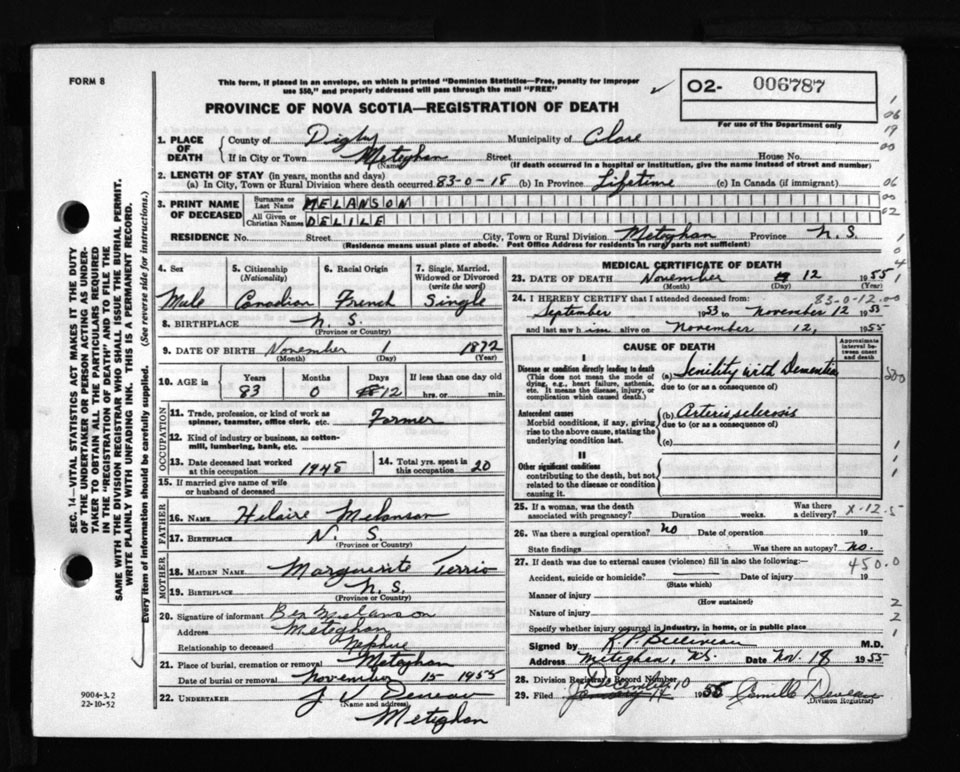 FORM 8
This form, if placed in an envelope, on which is printed "Dominion Statistics—Free, penalty for improper
use $50," and properly addressed will pass through the mail "FREE"
O2- 006787
For use of the Department only
PROVINCE OF NOVA SCOTIA—REGISTRATION OF DEATH
1. PLACE OF DEATH
County of Digby Municipality of Clare
If in City or Town Meteghan Street House No.
(Name) (If death occurred in a hospital or institution, give the name instead of street and number)
2. LENGTH OF STAY (in years, months and days)
(a) In City, Town or Rural Division where death occurred 83-0-18 (b) In Province Lifetime (c) In Canada (if immigrant)
3. PRINT NAME OF DECEASED
Surname or Last Name MELANSON
All Given or Christian Names DELILE
RESIDENCE No. Street City, Town or Rural Division Meteghan Province N.S.
(Residence means usual place of abode. Post Office Address for residents in rural parts not sufficient)
4. Sex Male
5. Citizenship (Nationality) Canadian
6. Racial Origin French
7. Single, Married, Widowed or Divorced (write the word) Single
8. BIRTHPLACE N.S.
(Province or Country)
9. DATE OF BIRTH November 1 1872
(Month) (Day) (Year)
10. AGE in Years Months Days If less than one day old
83 0 12 hrs. or min.
OCCUPATION
11. Trade, profession, or kind of work as spinner, teamster, office clerk, etc. Farmer
12. Kind of industry or business, as cotton-mill, lumbering, bank, etc.
13. Date deceased last worked at this occupation 1948
14. Total yrs. spent in this occupation 20
15. If married give name of wife or husband of deceased
FATHER
16. NAME Helaire Melanson
17. BIRTHPLACE N. S.
(Province or Country)
MOTHER
18. MAIDEN NAME Marguerite Terrio
19. BIRTHPLACE N.S.
(Province or Country)
20. Signature of informant Ben Melanson
Address Meteghan
Relationship to deceased Nephue
21. Place of burial, cremation or removal Meteghan
Date of burial or removal November 15 1955
22. UNDERTAKER J V Deveau
(Name and address)
Meteghan
MEDICAL CERTIFICATE OF DEATH
23. DATE OF DEATH November 12 1955
(Month) (Day) (Year)
83-0-12.00
24. I HEREBY CERTIFY that I attended deceased from:
September 1953 to November 12 1955
and last saw him alive on November 12, 1955
CAUSE OF DEATH
Approximate interval between onset and death
I
Disease or condition directly leading to death
(This does not mean the mode of dying, e.g., heart failure, asthenia, etc. It means the disease, injury, or complication which caused death.)
(a) Senility with Dementia
due to (or as a consequence of)
Antecedent causes
Morbid conditions, if any, giving rise to the above cause, stating the underlying condition last.
(b) Arteriosclerosis
due to (or as a consequence of)
(c)
II
Other significant conditions
contributing to the death, but not related to the disease or condition causing it.
25. If a woman, was the death associated with pregnancy? Duration weeks. Was there a delivery? X-12.5
26. Was there a surgical operation? No Date of operation 19
State findings Was there an autopsy? No.
27. If death was due to external causes (violence) fill in also the following:— 450.0
Accident, suicide or homicide? Date of injury 19
(State which)
Manner of injury
(How sustained)
Nature of injury
Specify whether injury occurred in industry, in home, or in public place
Signed by R.P. Belliveau M.D.
Address Meteghan, N.S. Date Nov. 18 1955
28. Division Registrar's Record Number
29. Filed December 10 1955 Camille Deveau
(Division Registrar)
SEC. 14—VITAL STATISTICS ACT MAKES IT THE DUTY
OF THE UNDERTAKER OR PERSON ACTING AS UNDER-
TAKER TO OBTAIN ALL THE PARTICULARS REQUIRED
IN THE "REGISTRATION OF DEATH" AND TO FILE THE
SAME WITH THE DIVISION REGISTRAR WHO SHALL ISSUE THE BURIAL PERMIT.
WRITE PLAINLY WITH UNFADING INK. THIS IS A PERMANENT RECORD.
Every item of information should be carefully supplied. (See reverse side for instructions.)
9004-3.2
22-10-52